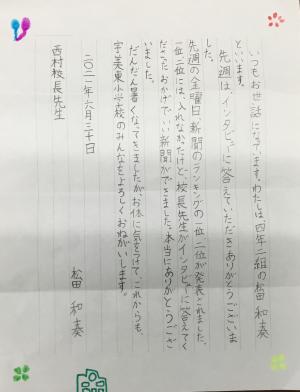 いつもお世話になってます。わたしは、四年二組の松田和奏
といいます。
先週はインタビューに答えていただきありがとうございま
した。
先週の金曜日、新聞のランキングの一位二位が発表されました。
一位二位には、入れなかたけど、校長先生がインタビューに答えてく
ださったおかげでいい新聞ができました。本当にありがとうござ
いました。
だんだん暑くなってきましたが、お体に気をつけて、これからも、
宇美東小学校のみんなをよろしくおねがいします。
二〇二一年六月三十日
松田和奏
西村校長先生